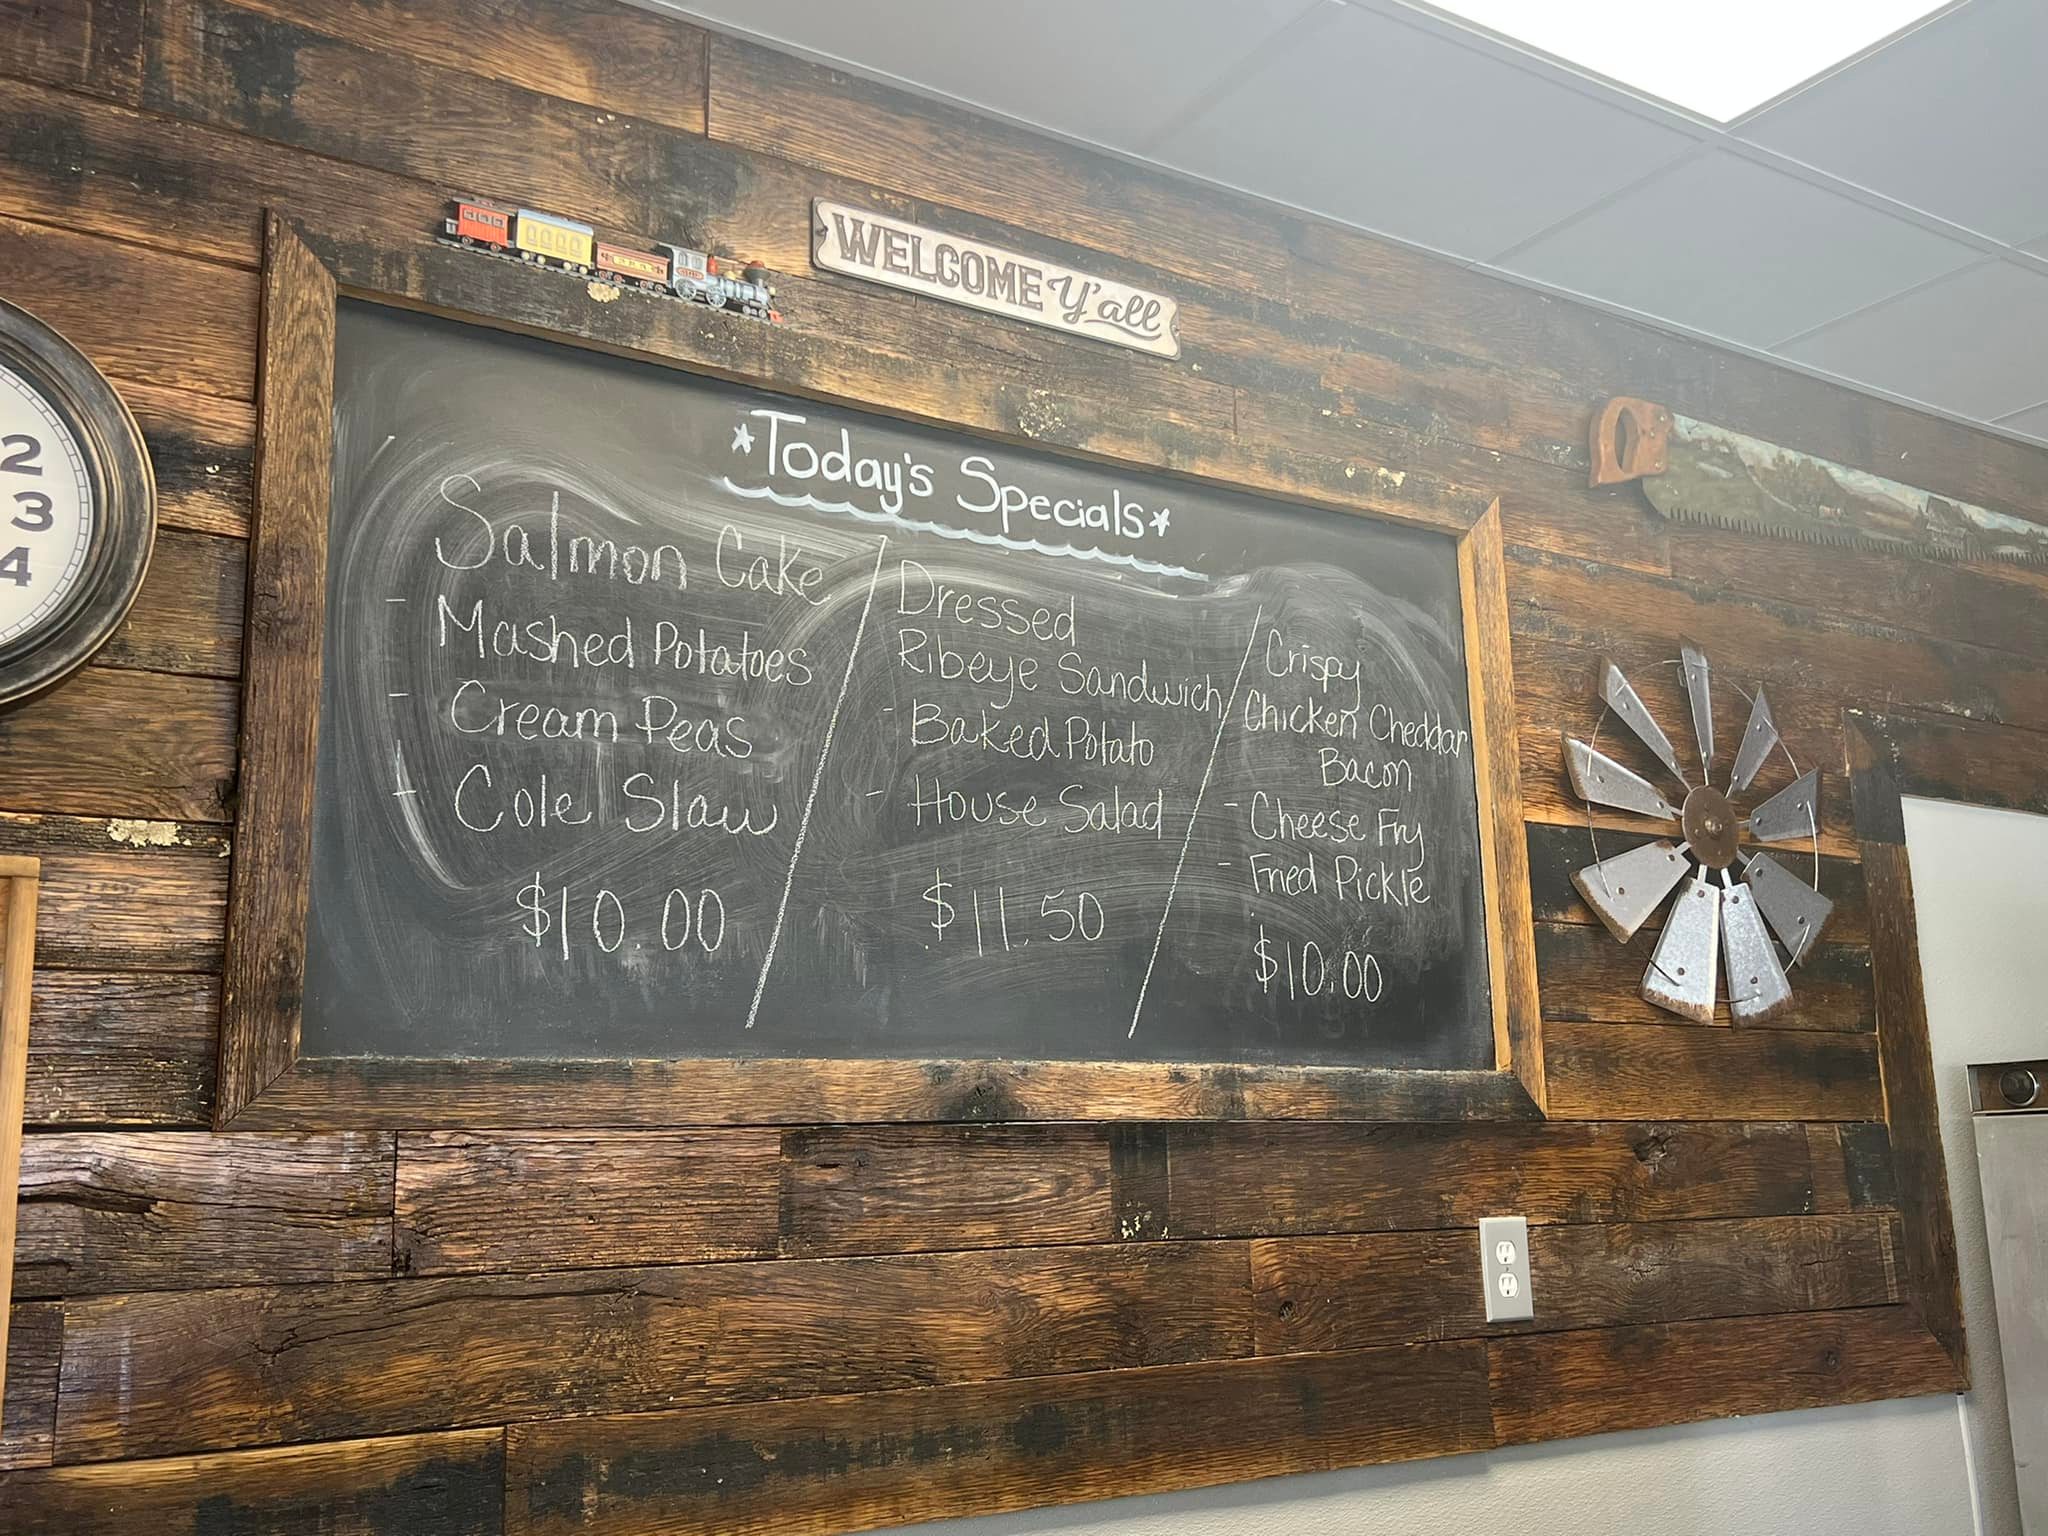 2
3
4
WELCOME Y'all
*Today's Specials*
Salmon Cake
- Mashed Potatoes
- Cream Peas
- Cole Slaw
$10.00
Dressed
Ribeye Sandwich
- Baked Potato
- House Salad
$11.50
Crispy
Chicken Cheddar
Bacon
- Cheese Fry
- Fried Pickle
$10.00